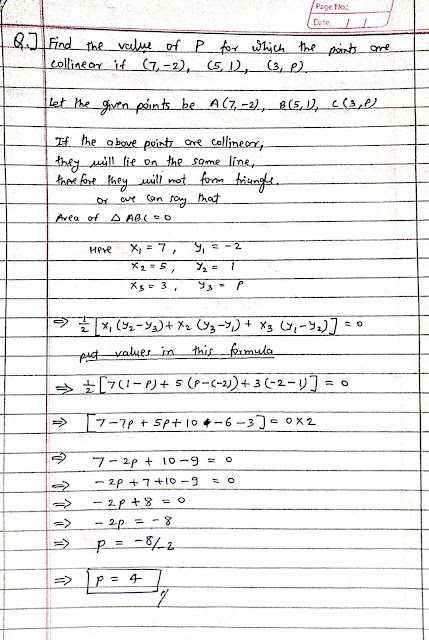 Page No.:
Date: / /
Q.] Find the value of P for which the points are
collinear if (7,-2), (5, 1), (3, P).
Let the given points be A(7,-2), B(5,1), C(3,P)
If the above points are collinear,
they will lie on the same line,
therefore they will not form triangle.
or we can say that
Area of △ ABC = 0
Here x₁ = 7, y₁ = -2
x₂ = 5, y₂ = 1
x₃ = 3, y₃ = P
⇒ 1/2 [x₁ (y₂-y₃) + x₂ (y₃-y₁) + x₃ (y₁-y₂)] = 0
put values in this formula
⇒ 1/2 [7(1-P) + 5 (P-(-2)) + 3(-2-1)] = 0
⇒ [7-7P + 5P + 10 -6-3] = 0x2
⇒ 7-2p + 10-9 = 0
⇒ -2p + 7+10-9 = 0
⇒ -2p + 8 = 0
⇒ -2p = -8
⇒ p = -8/-2
⇒ p = 4